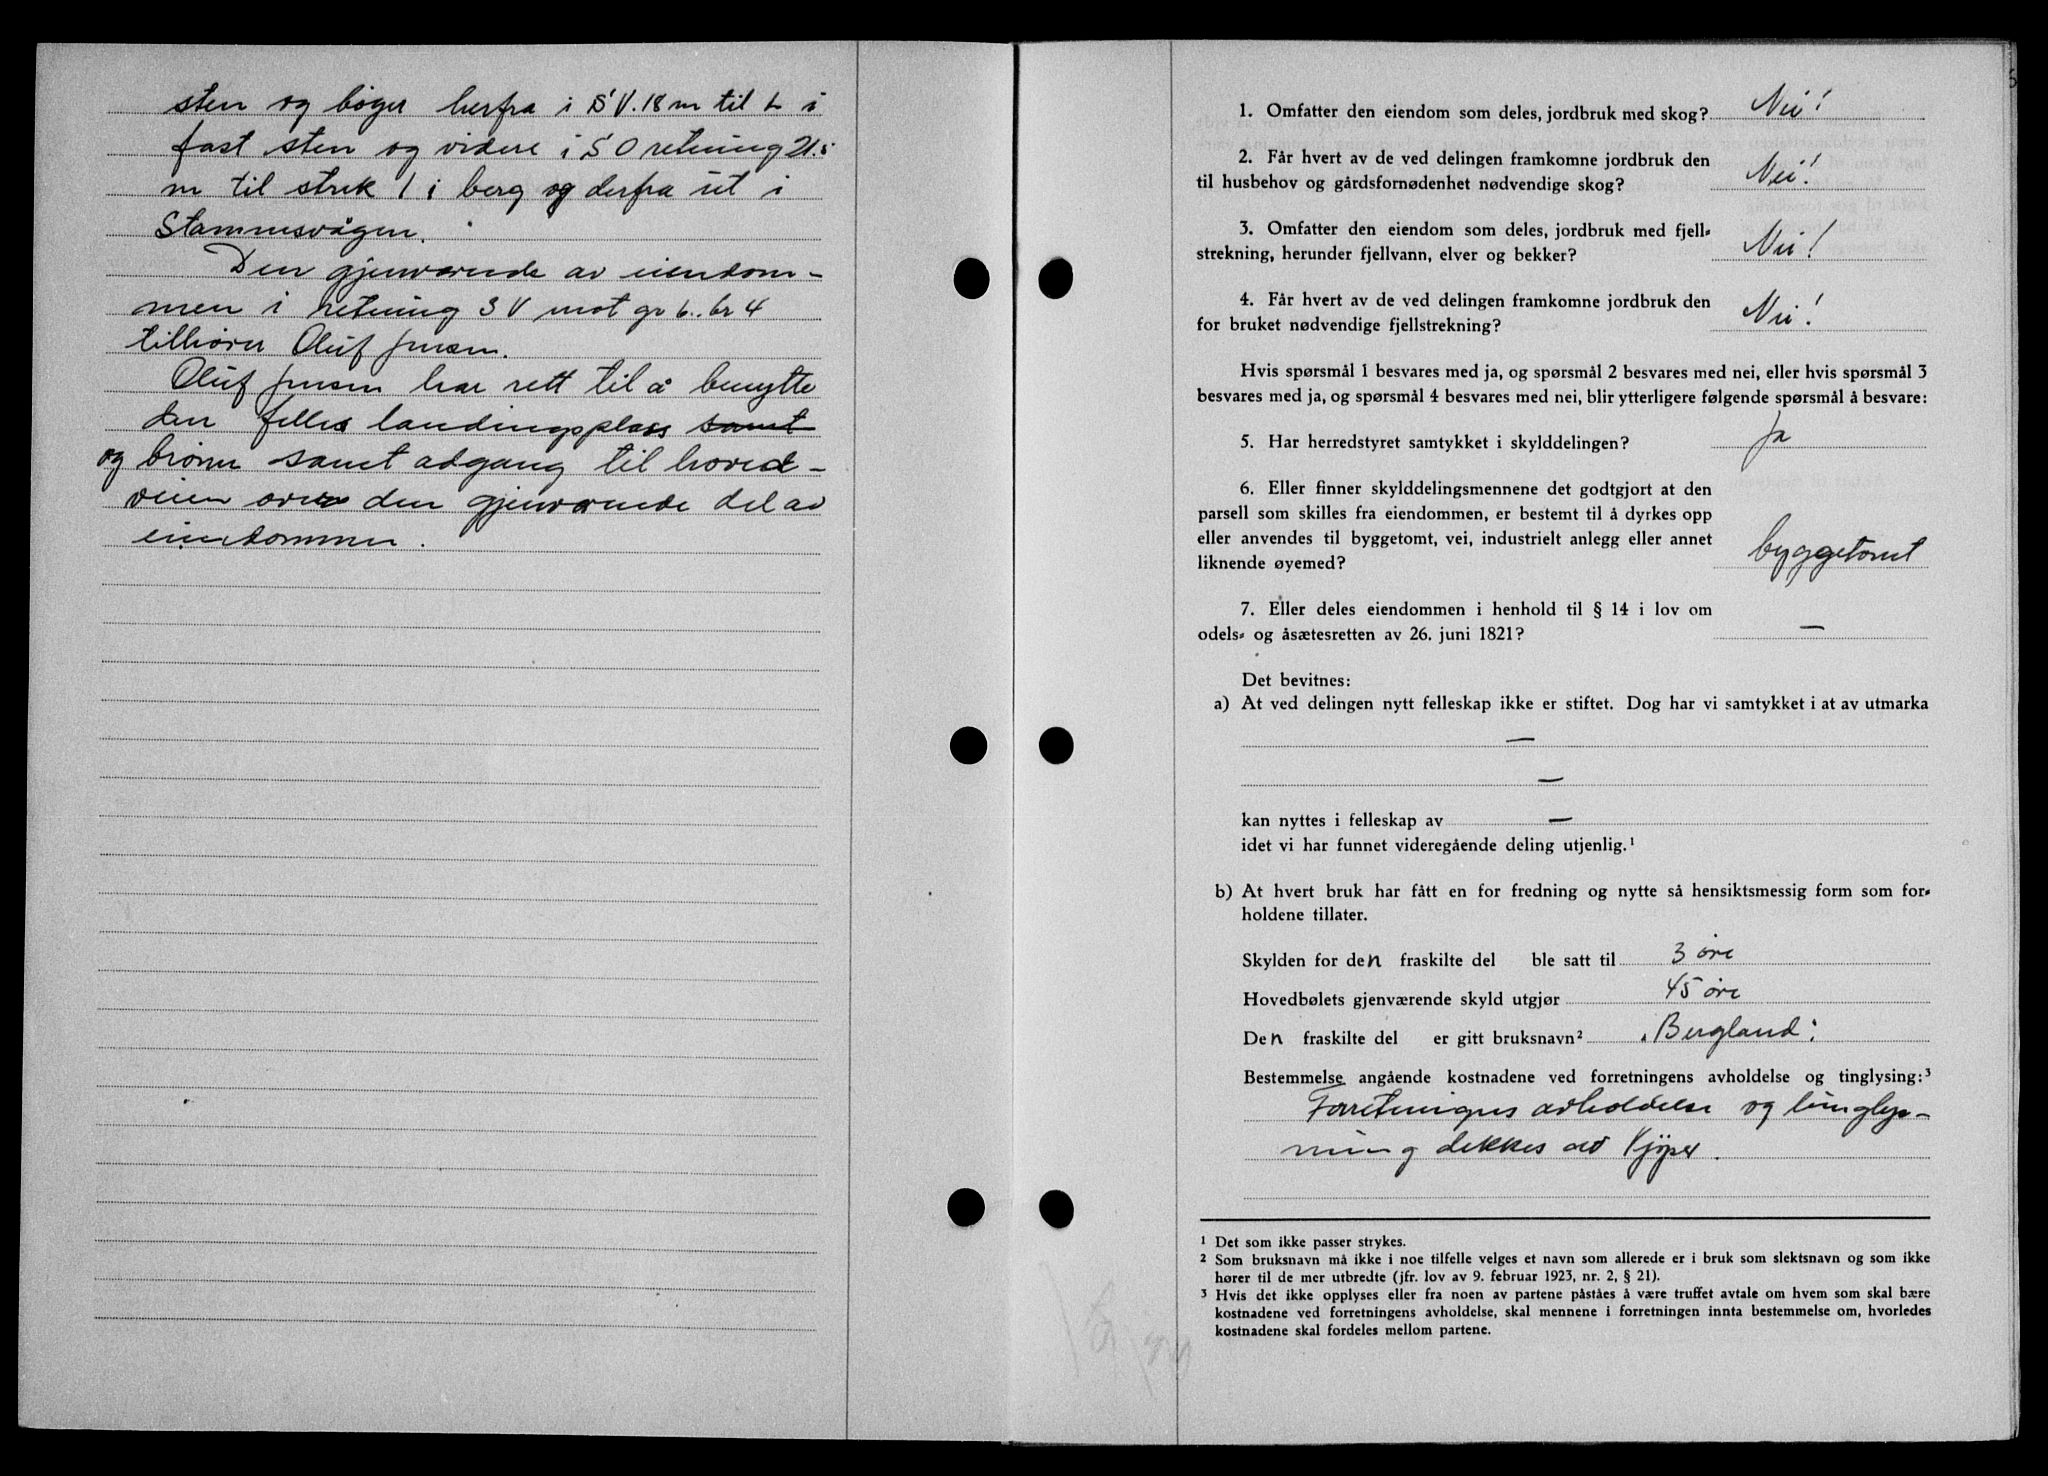 sten og bøyer herfra i S V. 18 m til L i
fast sten og videre i S O retning 21.5
m til strek 1 i berg og derfra ut i
Stamnesvågen.
Den gjenværende av eiendom-
men i retning S V mot gr 6. br 4
tilhører Oluf Jensen.
Oluf Jensen har rett til å benytte
den felles landingsplass samt
og brønn samt adgang til hoved-
veien over den gjenværende del av
eiendommen.
1. Omfatter den eiendom som deles, jordbruk med skog? Nei!
2. Får hvert av de ved delingen framkomne jordbruk den
til husbehov og gårdsfornødenhet nødvendige skog? Nei!
3. Omfatter den eiendom som deles, jordbruk med fjell-
strekning, herunder fjellvann, elver og bekker? Nei!
4. Får hvert av de ved delingen framkomne jordbruk den
for bruket nødvendige fjellstrekning? Nei!
Hvis spørsmål 1 besvares med ja, og spørsmål 2 besvares med nei, eller hvis spørsmål 3
besvares med ja, og spørsmål 4 besvares med nei, blir ytterligere følgende spørsmål å besvare:
5. Har herredstyret samtykket i skylddelingen? Ja
6. Eller finner skylddelingsmennene det godtgjort at den
parsell som skilles fra eiendommen, er bestemt til å dyrkes opp
eller anvendes til byggetomt, vei, industrielt anlegg eller annet
liknende øyemed? byggetomt
7. Eller deles eiendommen i henhold til § 14 i lov om
odels- og åsætesretten av 26. juni 1821? —
Det bevitnes:
a) At ved delingen nytt felleskap ikke er stiftet. Dog har vi samtykket i at av utmarka
—
—
kan nyttes i felleskap av —
idet vi har funnet videregående deling utjenlig.¹
b) At hvert bruk har fått en for fredning og nytte så hensiktsmessig form som for-
holdene tillater.
Skylden for den fraskilte del ble satt til 3 øre
Hovedbølets gjenværende skyld utgjør 45 øre
Den fraskilte del er gitt bruksnavn² "Bergland"
Bestemmelse angående kostnadene ved forretningens avholdelse og tinglysing:³
Forretningens avholdelse og tinglys-
ning dekkes av Kjøper.
¹ Det som ikke passer strykes.
² Som bruksnavn må ikke i noe tilfelle velges et navn som allerede er i bruk som slektsnavn og som ikke
hører til de mer utbredte (jfr. lov av 9. februar 1923, nr. 2, § 21).
³ Hvis det ikke opplyses eller fra noen av partene påstås å være truffet avtale om hvem som skal bære
kostnadene ved forretningens avholdelse, skal mennene i forretningen innta bestemmelse om, hvorledes
kostnadene skal fordeles mellom partene.